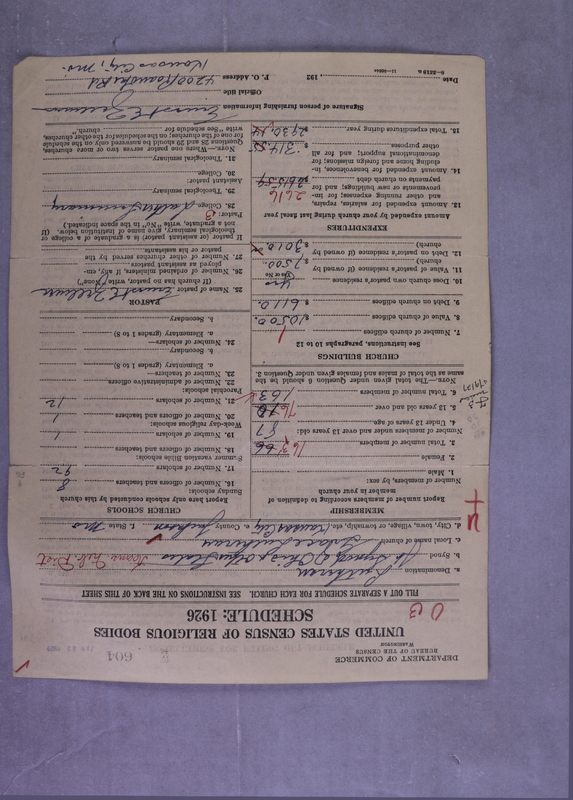 DEPARTMENT OF COMMERCE
BUREAU OF THE CENSUS
WASHINGTON
604
UNITED STATES CENSUS OF RELIGIOUS BODIES
SCHEDULE: 1926
FILL OUT A SEPARATE SCHEDULE FOR EACH CHURCH. SEE INSTRUCTIONS ON THE BACK OF THIS SHEET
a. Denomination Lutheran
b. Synod Synod of Ohio and other States
c. Local name of church Grace Lutheran
d. City, town, village, or township, etc. Kansas City e. County Jackson f. State Mo
MEMBERSHIP
Report number of members according to definition of member in your church
Number of members, by sex:
1. Male
2. Female
3. Total number of members 163
Number of members under and over 13 years old:
4. Under 13 years of age 87
5. 13 years old and over 76
6. Total number of members 163
NOTE.—The total given under Question 6 should be the same as the total of males and females given under Question 3.
CHURCH BUILDINGS
See instructions, paragraphs 10 to 12
7. Number of church edifices 1
8. Value of church edifices $ 10500.
9. Debt on church edifices $ 6110.
10. Does church own pastor's residence? yes
(Yes or No)
11. Value of pastor's residence (if owned by church) $ 7500
12. Debt on pastor's residence (if owned by church) $ 3010
EXPENDITURES
Amount expended by your church during last fiscal year
13. Amount expended for salaries, repairs, and other running expenses; for improvements or new buildings; and for payments on church debt $ 2615.59
2616
14. Amount expended for benevolences, including home and foreign missions; for denominational support; and for all other purposes $ 314.55
15. Total expenditures during year $ 2930.14
CHURCH SCHOOLS
Report here only schools conducted by this church
Sunday schools:
16. Number of officers and teachers 8
17. Number of scholars 92
Summer vacation Bible schools:
18. Number of officers and teachers
19. Number of scholars
Week-day religious schools:
20. Number of officers and teachers 1
21. Number of scholars 12
Parochial schools:
22. Number of administrative officers
23. Number of teachers—
a. Elementary (grades 1 to 8)
b. Secondary
24. Number of scholars—
a. Elementary (grades 1 to 8)
b. Secondary
PASTOR
25. Name of pastor
(If church has no pastor, write "None")
26. Number of ordained ministers, if any, employed as assistant pastors
27. Number of other churches served by the pastor or his assistants
If pastor (or assistant pastor) is a graduate of a college or theological seminary, give name of institution below. (If not a graduate, write "No" in the space indicated.)
Pastor:
28. College
29. Theological seminary Luther Seminary
Assistant pastor:
30. College
31. Theological seminary
NOTE.—Where one pastor serves two or more churches, Questions 25 and 29 should be answered only on the schedule for one of the churches; on the schedules for the other churches, write "See schedule for church."
Signature of person furnishing information
Official title
P. O. Address
Kansas City, Mo.
Date , 192
8—5318 a